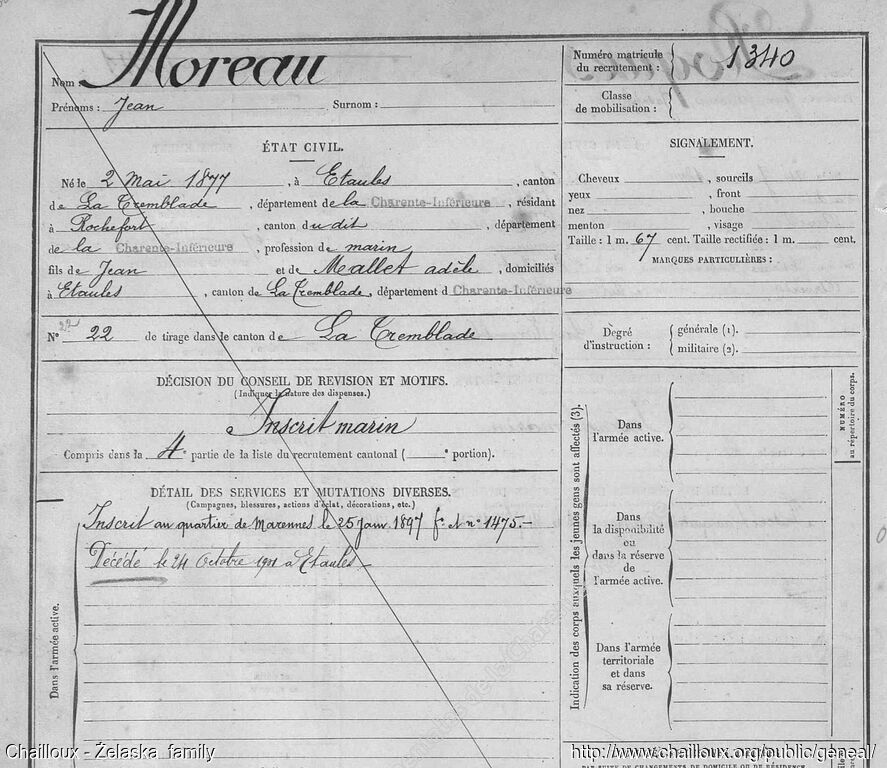 Nom : Moreau
Prénoms : Jean Surnom :
Numéro matricule du recrutement : 1340
Classe de mobilisation :
ÉTAT CIVIL.
Né le 2 Mai 1877, à Etaules, canton
de La Tremblade, département de la Charente-Inférieure, résidant
à Rochefort, canton du dit, département
de la Charente-Inférieure, profession de marin
fils de Jean et de Mallet adèle, domiciliés
à Etaules, canton de La Tremblade, département d Charente-Inférieure
N° 22 22 de tirage dans le canton de La Tremblade.
SIGNALEMENT.
Cheveux , sourcils
yeux , front
nez , bouche
menton , visage
Taille : 1 m. 67 cent. Taille rectifiée : 1 m. cent.
MARQUES PARTICULIÈRES :
Dégré d'instruction : générale (1).
militaire (2).
DÉCISION DU CONSEIL DE REVISION ET MOTIFS.
(Indiquer la nature des dispenses.)
Inscrit marin
Compris dans la 4e partie de la liste du recrutement cantonal ( e portion).
DÉTAIL DES SERVICES ET MUTATIONS DIVERSES.
(Campagnes, blessures, actions d'éclat, décorations, etc.)
Inscrit au quartier de Marennes le 25 Janv. 1897 fo N n° 1475.-
Décédé le 24 Octobre 1901 à Etaules.-
Dans l'armée active.
Indication des corps auxquels les jeunes gens sont affectés (3).
Dans
l'armée active.
Dans
la disponibilité
ou
dans la réserve
de
l'armée active.
Dans l'armée
territoriale
et dans
sa réserve.
NUMÉRO
au répertoire du corps.
Chailloux - Żelaska family
http://www.chailloux.org/public/geneal/
PAR SUITE DE CHANGEMENTS DE DOMICILE OU DE RÉSIDENCE